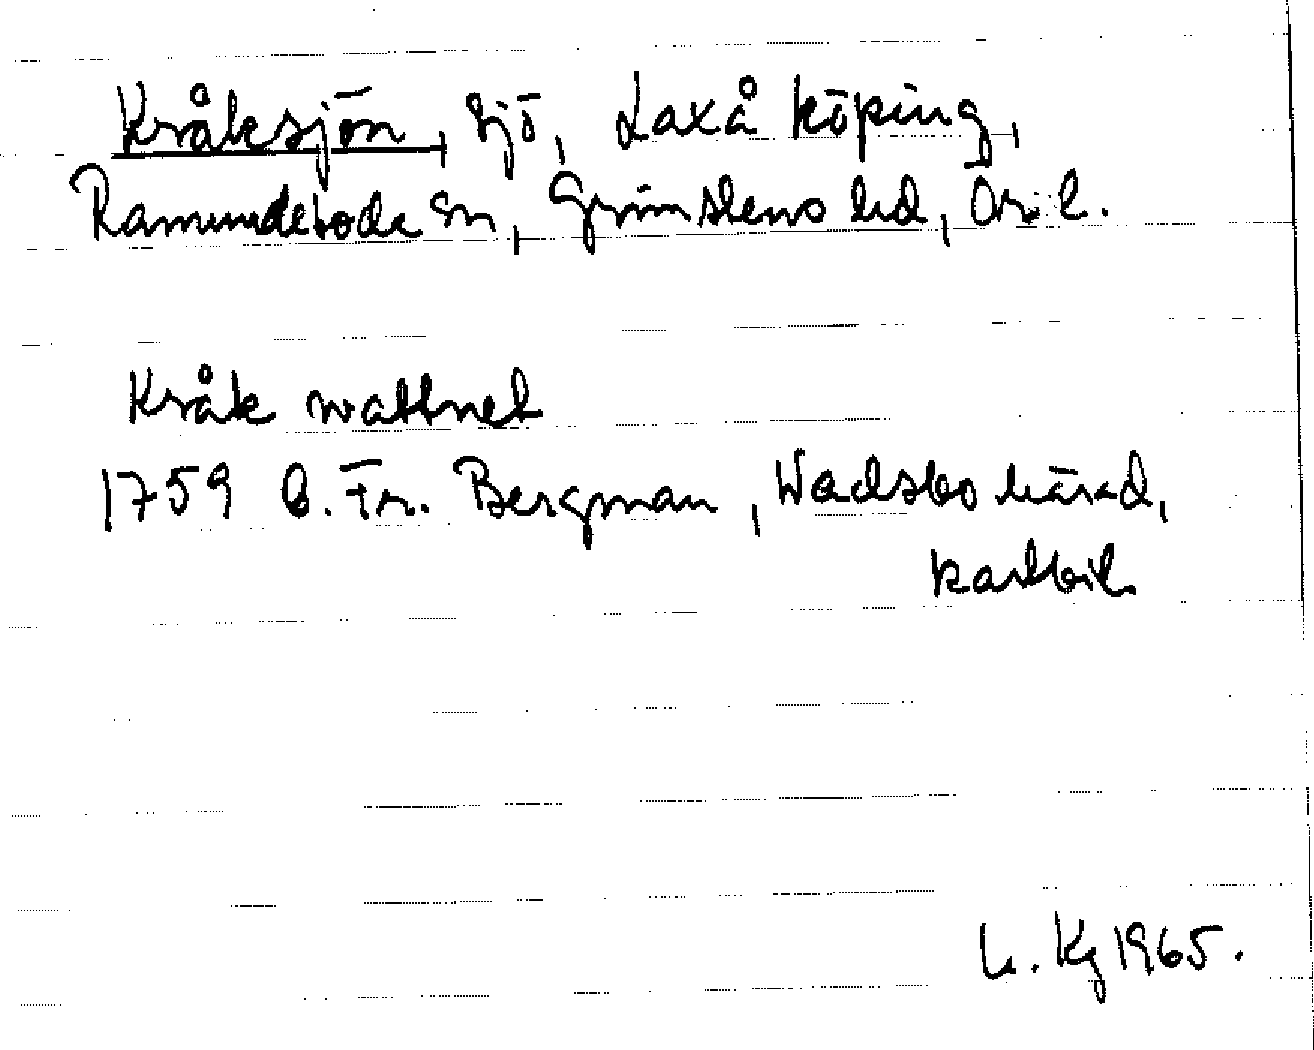 Kråksjön, sjö, Laxå köping,
Ramundeboda sn, Grimstens hd, Ör. l.
Kråk wattnet
1759 B. Fr. Bergman, Wadsbo härad,
kartbil.
L. Kg 1965.